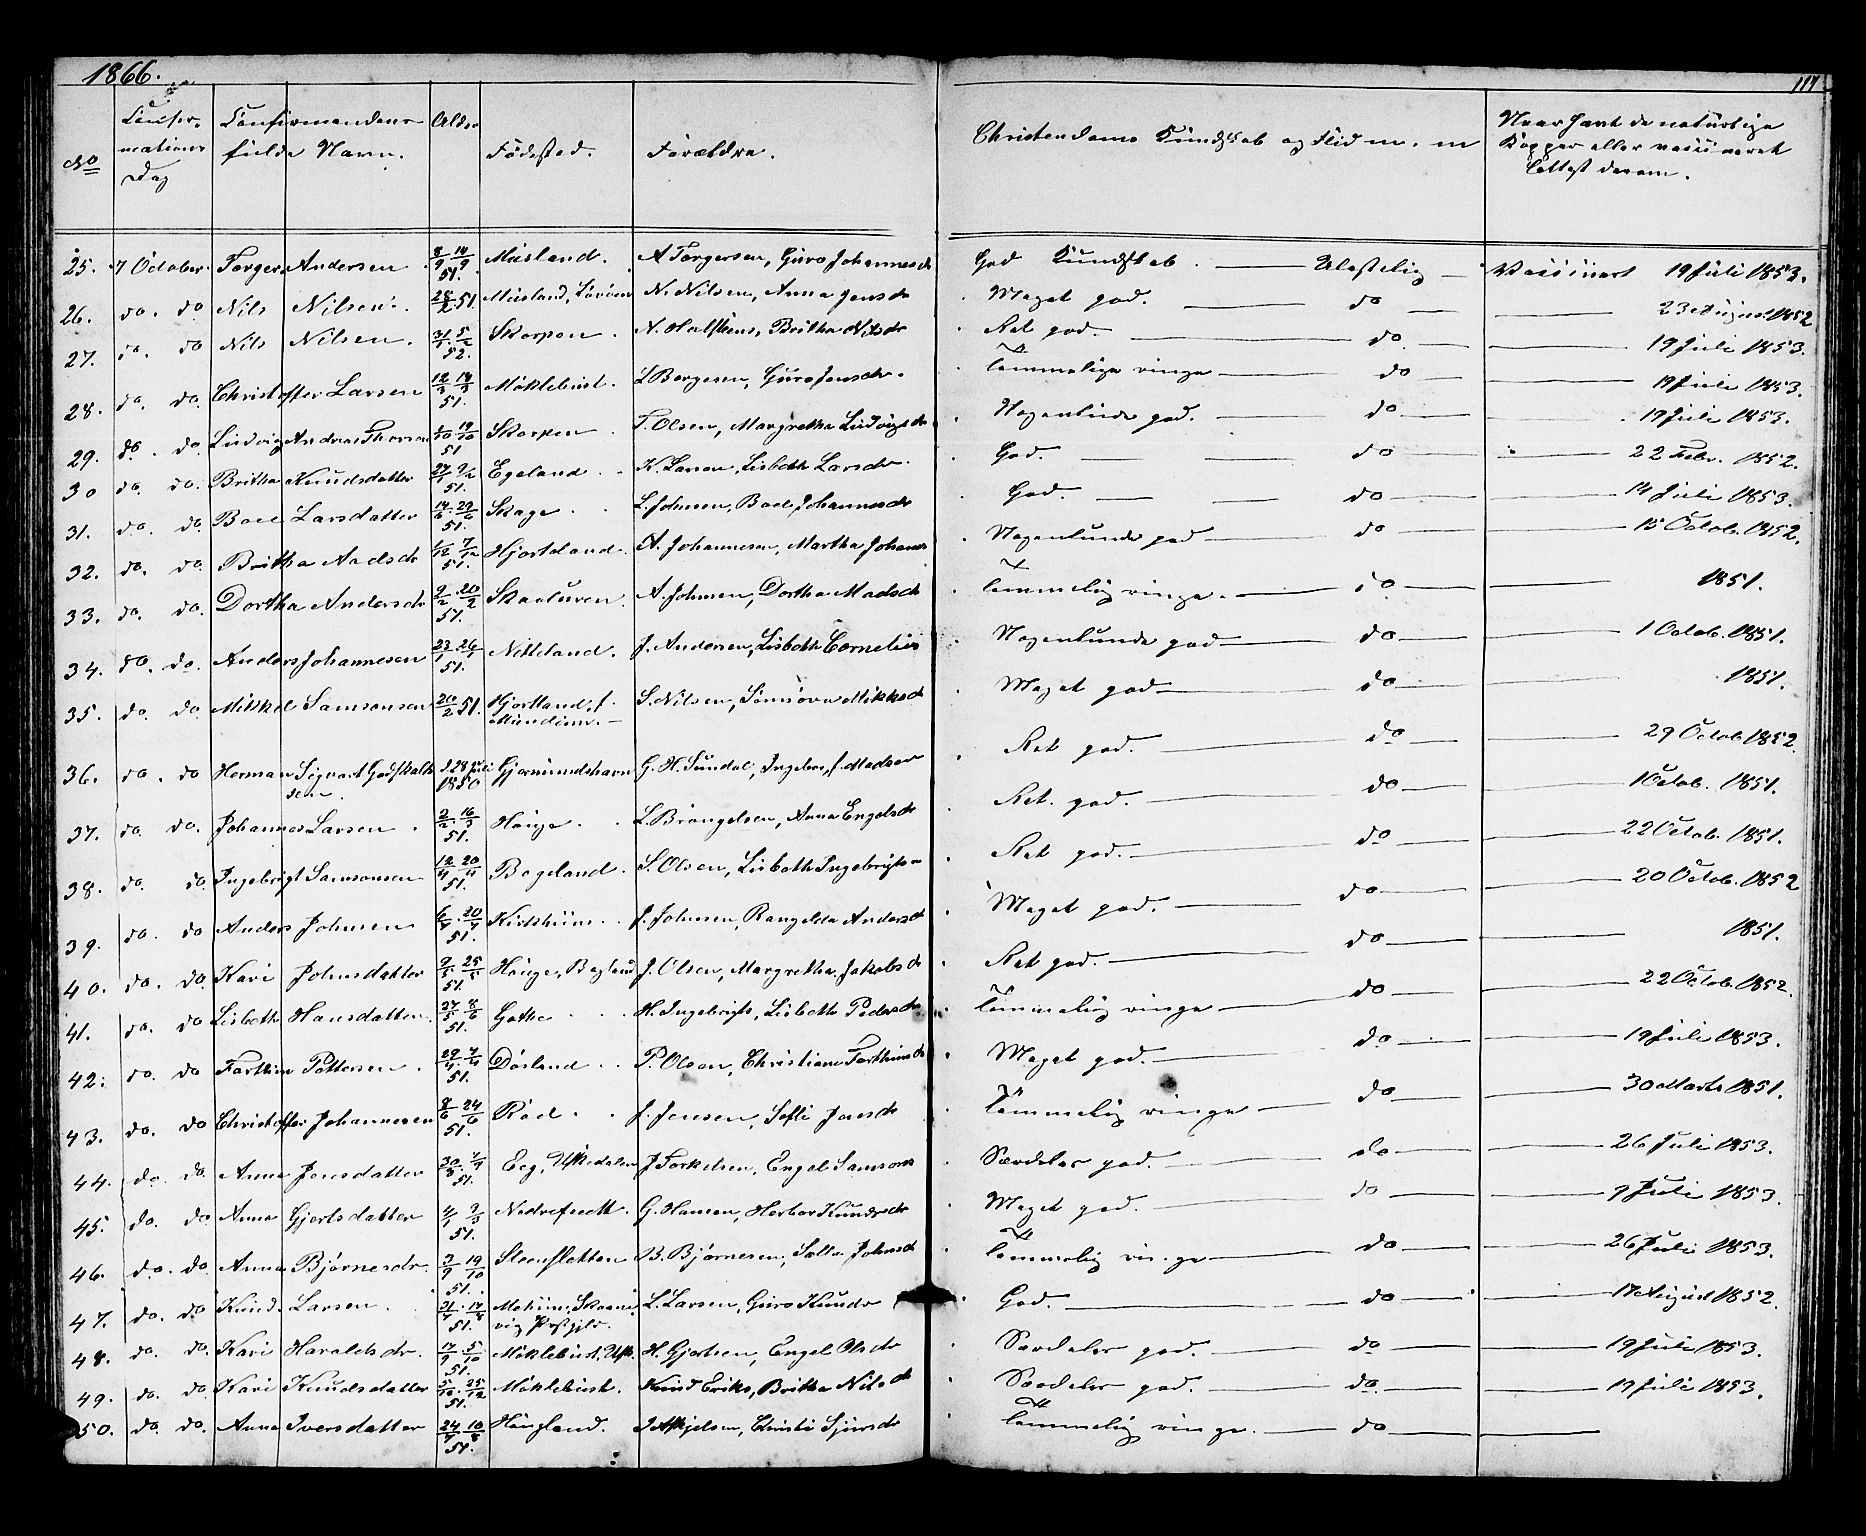 1866.
117
No
Confirmations Dag
Confirmandens fulde Navn.
Alder
Fødested.
Forældre.
Christendoms Kundskab og Flid m. m
Naar havt de naturlige Kopper eller vaccineret Attest derom.
25. 7 October Torger Andersen 8/9 14/9 51. Musland. A Torgersen, Guro Johannesdr God Kundskab. Ulastelig Vaccineret 19 Juli 1853.
26. do. do Nils Nilsen. 51. Musland, N. Nilsen, Anna Jensdr Meget god. do 23 August 1852
27. do. do Nils Nilsen. 52. Skorpen. N. Halsteens, Britha Nilsdr Ret god. do 19 Juli 1853.
28. do. do. Christoffer Larsen 12/3 19/3 51. Møklebust. L Borgesen, Guro Jensdr. Temmelige ringe do 19 Juli 1853.
29. do. do. Ludvig Andreas Thorsen 1/10 19/10 51 Skorpen T. Olsen, Margretha Ludvigsdr Nogenlunde god. do 19 Juli 1853.
30 do. do. Britha Knudsdatter 51. Egeland. K. Larsen, Lisbeth Larsdr. God. do 22 Febr. 1852.
31. do. do. Boel Larsdatter 51. Skage. L. Johnsen, Boel Johannesdr God. do 14 Juli 1853.
32. do. do. Britha Aadsdr 1/12 7/12 51. Hjorteland. A. Johannesen, Martha Johanns Nogenlunde god do 15 Octob. 1852.
33. do. do. Dortha Andersdr 9/2 20/2 51. Skaaluren. A. Johnsen, Dortha Madsdr Temmelig ringe. do 1851.
34. do. do. Anders Johannesen 23/1 26/1 51. Netteland. J. Andersen, Lisbeth Cornelius Nogenlunde god do 1 Octob. 1851.
35. do. do. Mikkel Samsonsen 20/2 51. Hjortland, f. S. Nilsen, Sinniova Mikkelsdr Meget god do 1851.
36. do. do Herman Sigvart Godskalksen. d 28 Juli 1850 Gjermundshavn G. H. Sundal, Ingebor, f. Madsen Ret god. do 29 Octob 1852.
37. do. do. Johannes Larsen. 2/2 16/3 51. Hauge. L. Brangelsen, Anna Engelsdr Ret. god. do 1 Octob. 1851.
38. do. do. Ingebrigt Samsonsen 12/4 20/4 51. Bogeland. S. Olsen, Lisbeth Ingebrigts Ret god. do 22 Octob. 1851.
39. do. do Anders Johnsen 51. Kirkhuus. J. Johnsen, Rangelda Andersdr Meget god. do 20 Octob. 1852
40. do. do. Kari Johnsdatter 9/5 25/5 51. Hauge, Bogland J. Olsen, Margretha Jakobsdr Ret god. do 1851.
41. do. do Lisbeth Hansdatter. 27/5 8/6 51. Gothe H. Ingebrigts, Lisbeth Pedersdr Temmelig ringe do 22 Octob. 1852.
42. do. do Torthim Pettersen. 51. Døsland P. Olsen, Christiane Torthimsdr Meget god. do 19 Juli 1853.
43. do. do Christoffer Johannesen 8/6 24/6 51. Rød J. Jensen, Sofli Jonsdr Temmelig ringe do 30 Marts 1851.
44. do. do. Anna Jensdatter 51. Eeg, Uskedalen J Torkelsen, Engel Samsons Særdeles god. do 26 Juli 1853.
45. do. do. Anna Gjertsdatter 51. G. Hansen, Herbor Knudsdr Meget god. do 9 Juli 1853.
46. do. do. Anna Bjørnesdr. 51. Steensletten B. Bjørnesen, Salla Johnsdr Temmelig ringe do 26 Juli 1853.
47. do. do. Knud. Larsen. 51. Skaanevig Præstgjld. L. Larsen, Guro Knudsdr God. do 17 August 1852.
48. do. do. Kari Haraldsdr. 51. Møklebust, Usk. H. Gjertsen, Engel Olsdr Særdeles god. do 19 Juli 1853.
49. do. do. Kari Knudsdatter 51. Møklebust. Knud Eriks, Britha Nilsdr Særdeles god. do. 19 Juli 1853.
50. do. do. Anna Iversdatter 51. Haugland. I. Christi Sjursdr Temmelig ringe. do